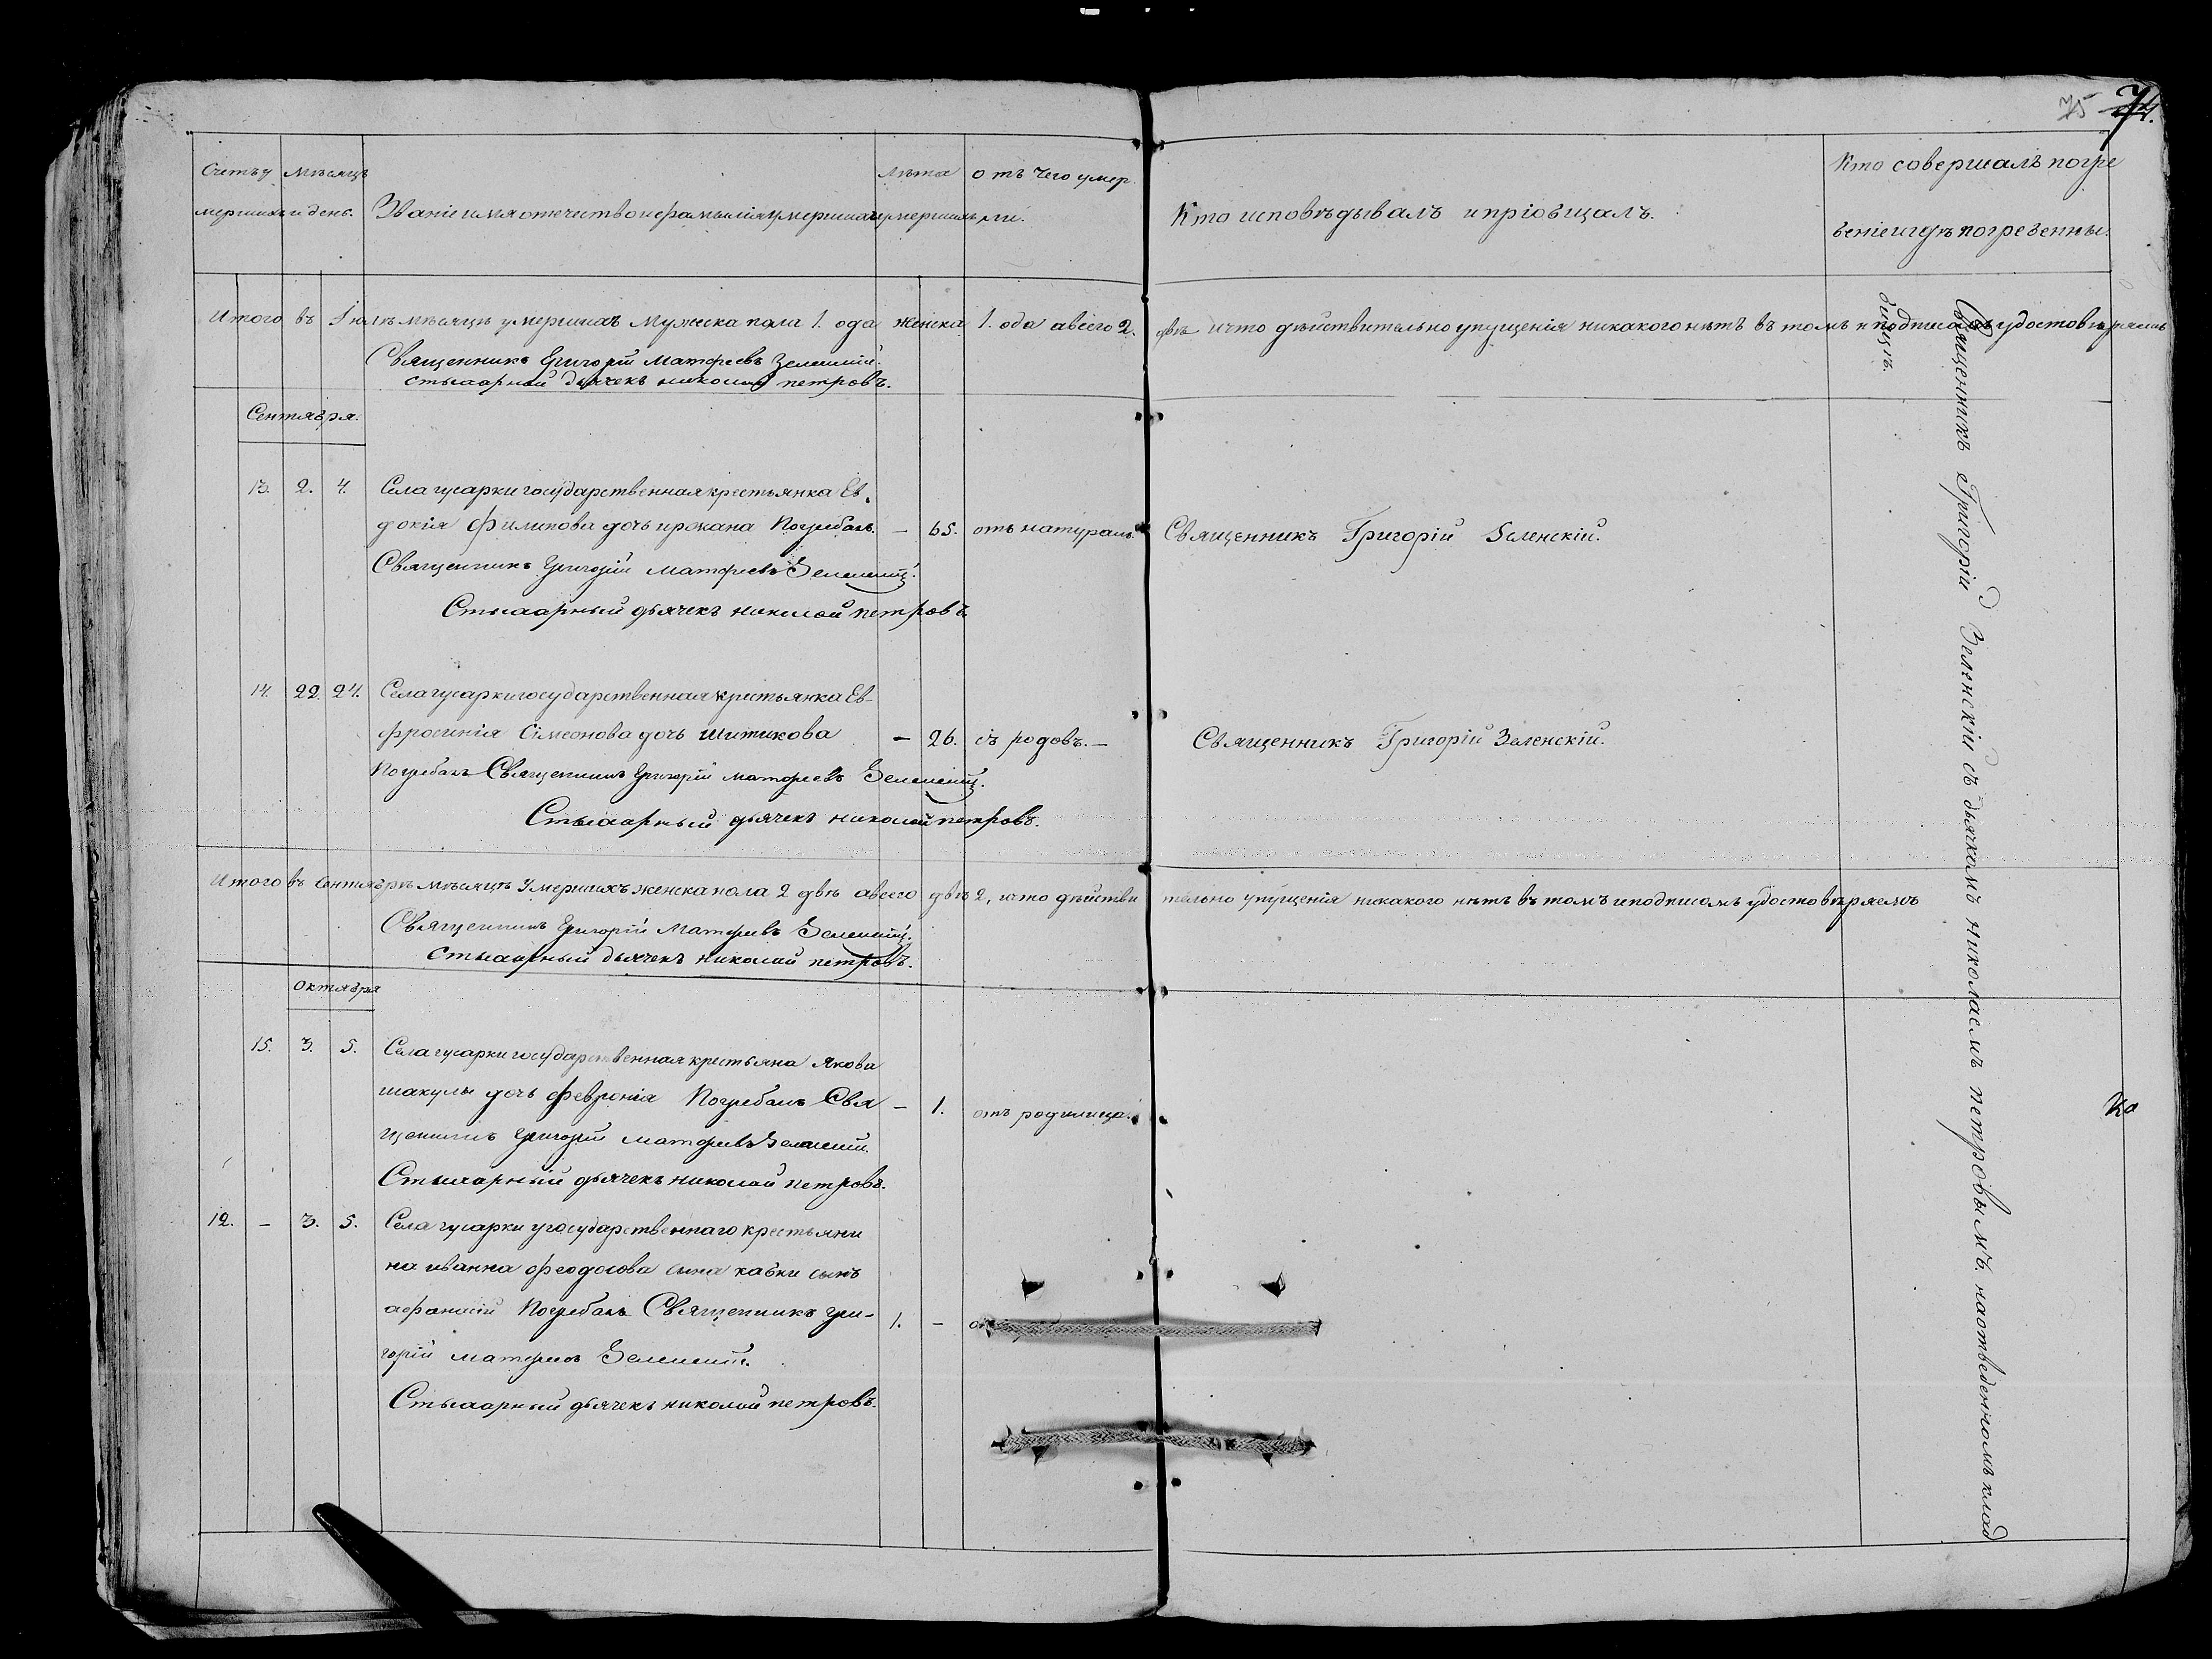 75 74.
Счетъ у
мершихъ
Мѣсяцъ
и день.
Званіе имя отечитво и фамылія умершихъ
лѣта
умершихъ
отъ чего умер
ли.
Кто исповѣдывалъ и пріобщалъ.
Кто совершалъ погре
беніе и гдѣ погребенны.
Итого въ Іюлѣ мѣсяцѣ умершихъ Мужеска пола 1. ода женска 1. ода а всего 2. двѣ и что дѣйствительно упущенія никакого нѣтъ въ томъ и подписомъ удостовѣряемъ
Священникъ Григорій Матфеевъ Зеленскій.
стыхарный дьячекъ николай петровъ.
Сентября.
13. 2. 4. Села гусарки государственная крестьянка Ев
докія Филипова дочь Погребалъ. — 65. отъ натуральн. Священникъ Григорій Зеленскій.
Священникъ Григорій Матфеевъ Зеленскій.
Стыхарный дьячекъ николай петровъ
14. 22. 24. Села гусарки государственная крестьянка Ев-
фросинія Сімеонова дочь Шитикова — 26. съ родовъ. — Священникъ Григорій Зеленскій.
Погребалъ Священникъ Григорій Матфеевъ Зеленскій.
Стыхарный дьячекъ николай петровъ.
Итого въ Сентябрѣ мѣсяцѣ умершихъ женска пола 2 двѣ а всего двѣ 2, и что дѣйстви тельно упущенія никакого нѣтъ въ томъ и подписомъ удостовѣряемъ
Священникъ Григорій Матфеевъ Зеленскій.
Стыхарный дьячекъ николай петровъ.
Октября
15. 3. 5. Села гусарки государственная крестьяна Якова
шакулы дочь Февронія Погребалъ Свя — 1. отъ родимца.
щенникъ Григорій Матфеевъ Зеленскій.
Стыхарный дьячекъ николай петровъ.
12. — 3. 5. Села гусарки у государственнаго крестьяни
на иванна феодосова сына кабки сынъ
афанасій Погребалъ Священникъ Гри- 1. —
горій Матфеевъ Зеленскій.
Стыхарный дьячекъ николай петровъ.
Священникъ Григорій Зеленскій съ дьячкомъ николаемъ петровымъ. на отведенномъ клад
бищѣ.
Ко